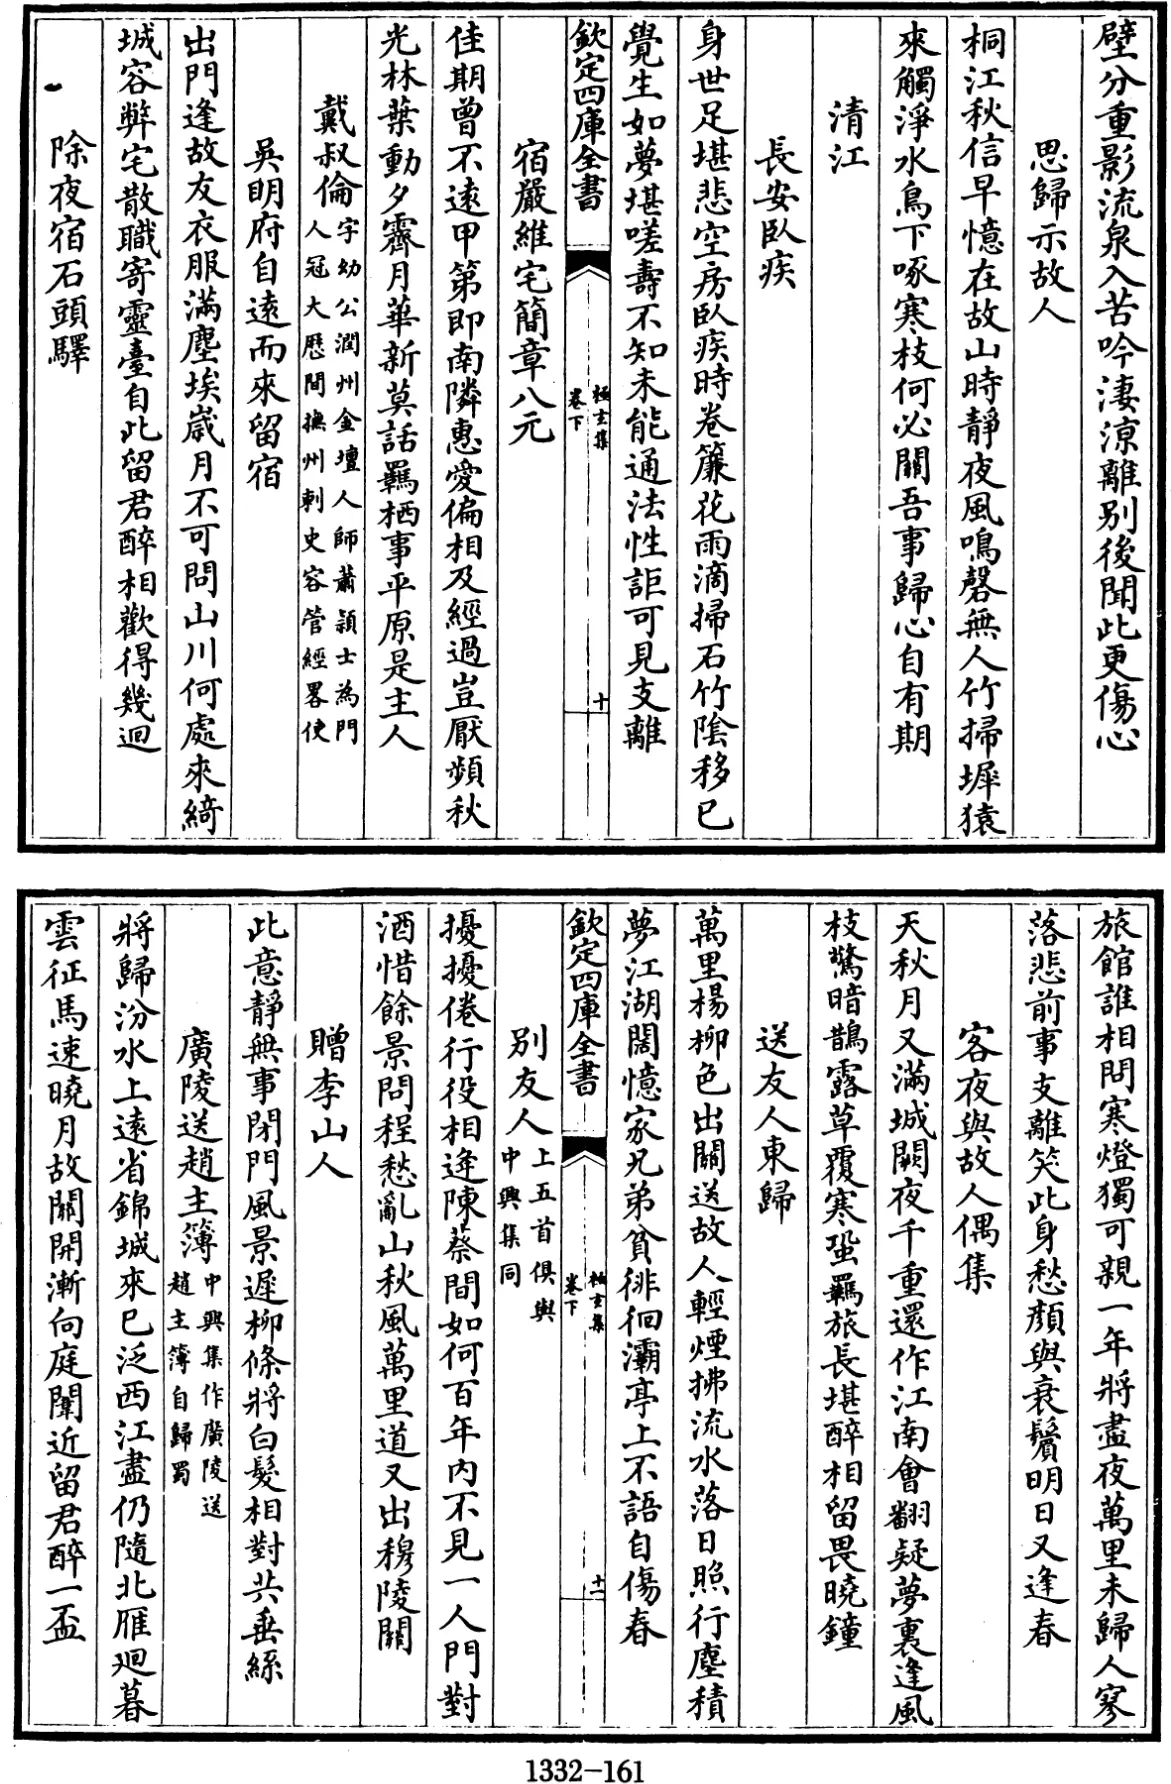 壁分重影流泉入苦吟淒涼離別後聞此更傷心
思歸示故人
桐江秋信早憶在故山時靜夜風鳴磬無人竹掃墀猿
來觸淨水鳥下啄寒枝何必關吾事歸心自有期
清江
長安臥疾
身世足堪悲空房臥疾時卷簾花雨滴掃石竹陰移已
覺生如夢堪嗟壽不知未能通法性詎可見支離
欽定四庫全書
極玄集
卷下
十
宿嚴維宅簡章八元
佳期曾不遠甲第即南隣惠愛偏相及經過豈厭頻秋
光林葉動夕霽月華新莫話羈栖事平原是主人
戴叔倫字幼公潤州金壇人師蕭穎士為門
人冠大歷間撫州刺史容管經畧使
吳明府自遠而來留宿
出門逢故友衣服滿塵埃歲月不可問山川何處來綺
城容弊宅散職寄靈臺自此留君醉相歡得幾迴
除夜宿石頭驛
旅館誰相問寒燈獨可親一年將盡夜萬里未歸人寥
落悲前事支離笑此身愁顏與衰鬢明日又逢春
客夜與故人偶集
天秋月又滿城闕夜千重還作江南會翻疑夢裏逢風
枝驚暗鵲露草覆寒蛩羈旅長堪醉相留畏曉鐘
送友人東歸
萬里楊柳色出關送故人輕煙拂流水落日照行塵積
夢江湖闊憶家兄弟貧徘徊灞亭上不語自傷春
欽定四庫全書
極玄集
卷下
十一
別友人上五首俱與
中興集同
擾擾倦行役相逢陳蔡間如何百年內不見一人閒對
酒惜餘景問程愁亂山秋風萬里道又出穆陵關
贈李山人
此意靜無事閉門風景遲柳條將白髮相對共垂絲
廣陵送趙主簿中興集作廣陵送
趙主簿自歸蜀
將歸汾水上遠省錦城來已泛西江盡仍隨北雁迴暮
雲征馬速曉月故關開漸向庭闈近留君醉一盃
1332-161